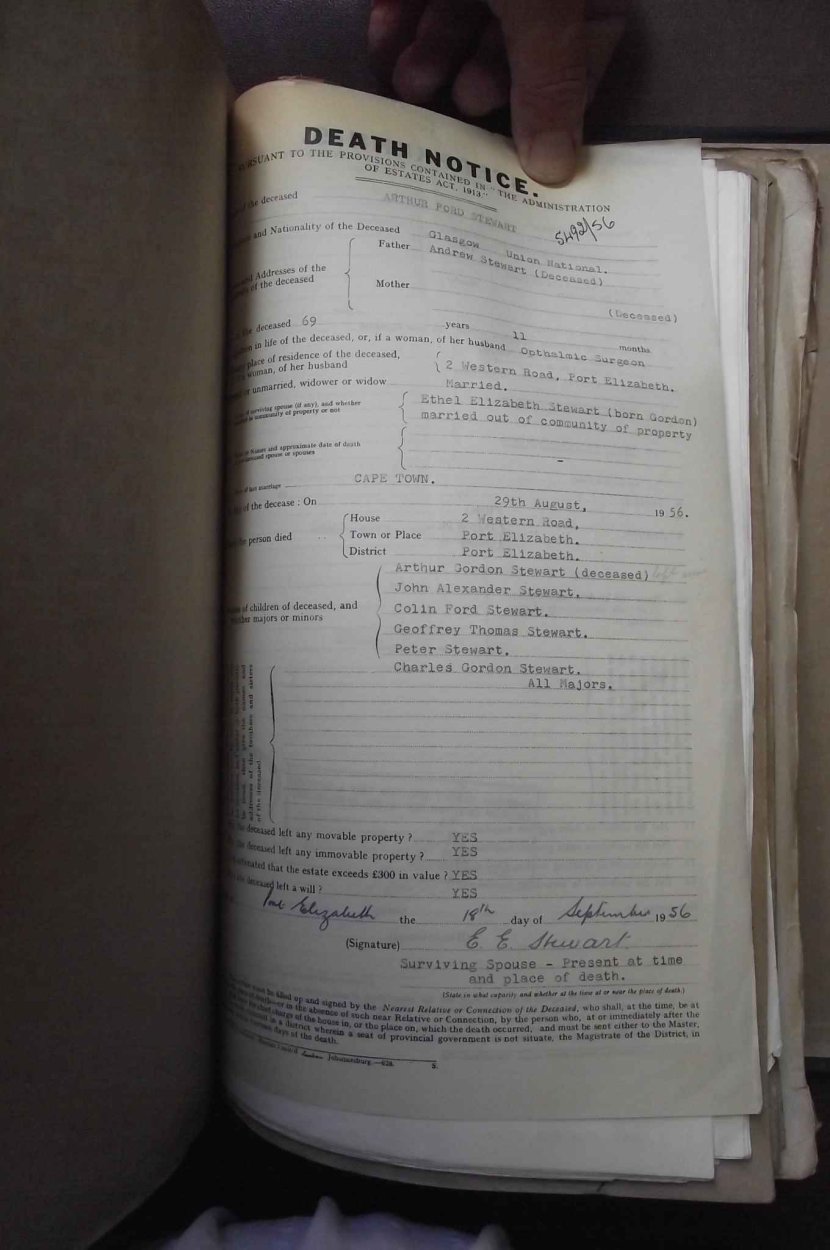 DEATH NOTICE.
PURSUANT TO THE PROVISIONS CONTAINED IN "THE ADMINISTRATION
OF ESTATES ACT, 1913."
of the deceased ARTHUR FORD STEWART
5492/56
and Nationality of the Deceased Glasgow Union National.
Father Andrew Stewart (Deceased)
and Addresses of the
of the deceased
Mother (Deceased)
the deceased 69 years 11 months
in life of the deceased, or, if a woman, of her husband Opthalmic Surgeon
place of residence of the deceased,
woman, of her husband 2 Western Road, Port Elizabeth.
or unmarried, widower or widow Married.
surviving spouse (if any), and whether
in community of property or not
Ethel Elizabeth Stewart (born Gordon)
married out of community of property
Names and approximate date of death
spouse or spouses
–
of last marriage CAPE TOWN.
of the decease : On 29th August, 1956.
the person died
House 2 Western Road,
Town or Place Port Elizabeth.
District Port Elizabeth.
of children of deceased, and
whether majors or minors
Arthur Gordon Stewart (deceased)
John Alexander Stewart.
Colin Ford Stewart.
Geoffrey Thomas Stewart.
Peter Stewart.
Charles Gordon Stewart.
All Majors.
addresses of the brothers and sisters
of the deceased.
deceased left any movable property ? YES
deceased left any immovable property ? YES
estimated that the estate exceeds £300 in value ? YES
deceased left a will ? YES
Port Elizabeth the 18th day of September 1956
(Signature) E E Stewart
Surviving Spouse - Present at time
and place of death.
(State in what capacity and whether at the time at or near the place of death.)
must be filled up and signed by the Nearest Relative or Connection of the Deceased, who shall, at the time, be at
or in the absence of such near Relative or Connection, by the person who, at or immediately after the
charge of the house in, or the place on, which the death occurred, and must be sent either to the Master,
in a district wherein a seat of provincial government is not situate, the Magistrate of the District, in
days of the death.
Johannesburg.—628. S.